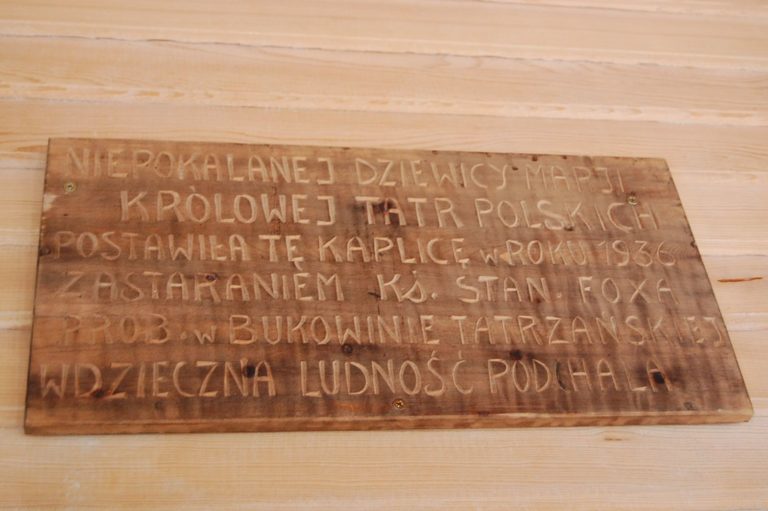 NIEPOKALANEJ DZIEWICY MARJI
KRÓLOWEJ TATR POLSKICH
POSTAWIŁA TĘ KAPLICĘ W ROKU 1936
ZASTARANIEM KŚ. STAN. FOXA
PROB. W BUKOWINIE TATRZAŃSKIEJ
WDZIECZNA LUDNOŚĆ PODCHALA